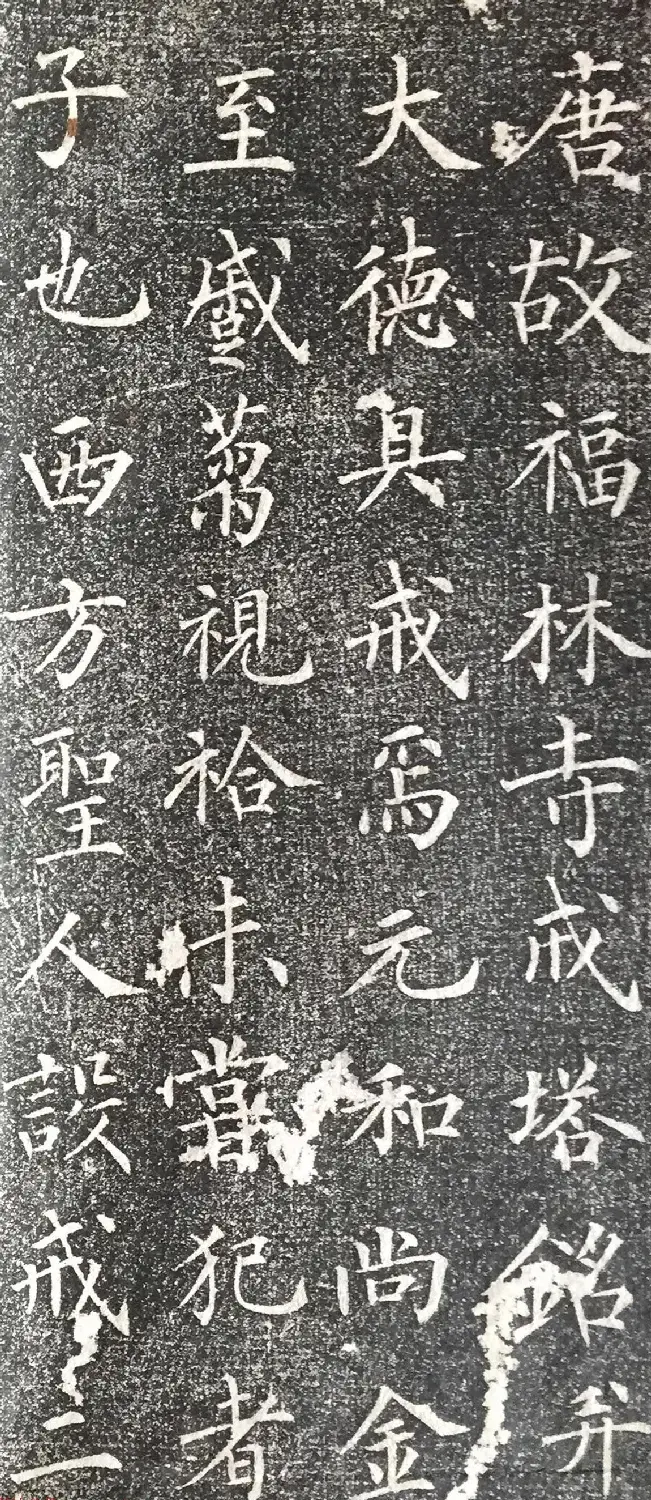 唐故福林寺戒塔銘并
大德具戒焉元和尚金
至蒭視袷未嘗犯者
子也西方聖人設戒二